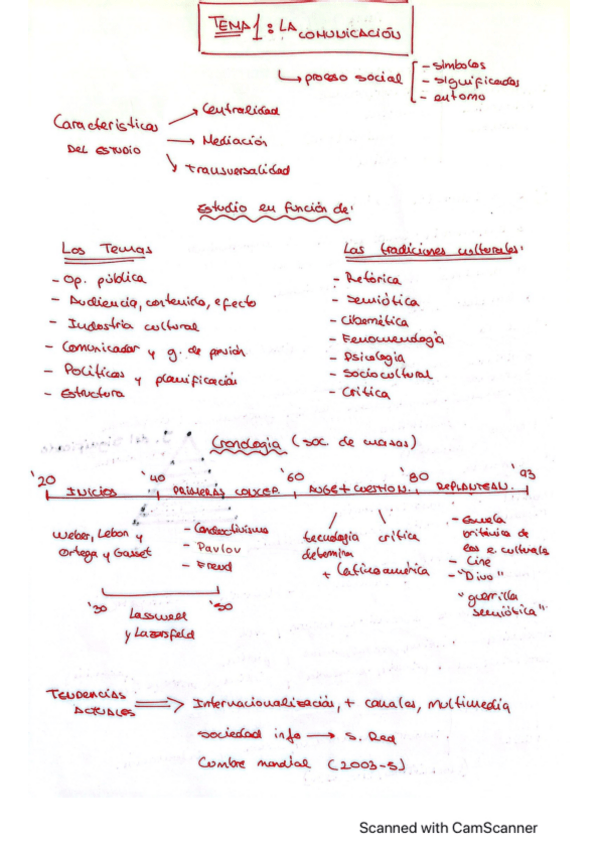 TEMA 1: LA COMUNICACIÓN
proceso social
- símbolos
- significados
- entorno
Características
DEL ESTUDIO
Centralidad
Mediación
transversalidad
Estudio en función de:
Los Temas
- Op. pública
- Audiencia, contenido, efecto
- Industria cultural
- Comunicador y g. de
- Políticas y planificación
- Estructura
Las tradiciones culturales:
- Retórica
- Semiótica
- Cibernética
- Fenomenología
- Psicología
- Sociocultural
- Crítica
Cronología (soc. de masas)
'20 '40 '60 '80 '93
INICIOS PRIMERAS CONCEP. AUGE + CUESTION. REPLANTEAM.
Weber, Lebon y
Ortega y Gasset
- Conductivismo
- Pavlov
- Freud
tecnología
determina
crítica
+ Latinoamérica
- Escuela
británica de
los e. culturales
- Cine
- "Divo"
"guerrilla
semiótica"
'30 '50
Lasswell
y Lazarsfeld
TENDENCIAS
ACTUALES
Internacionalización, + canales, multimedia
sociedad info → S. Red
Cumbre mundial (2003-5)
Scanned with CamScanner